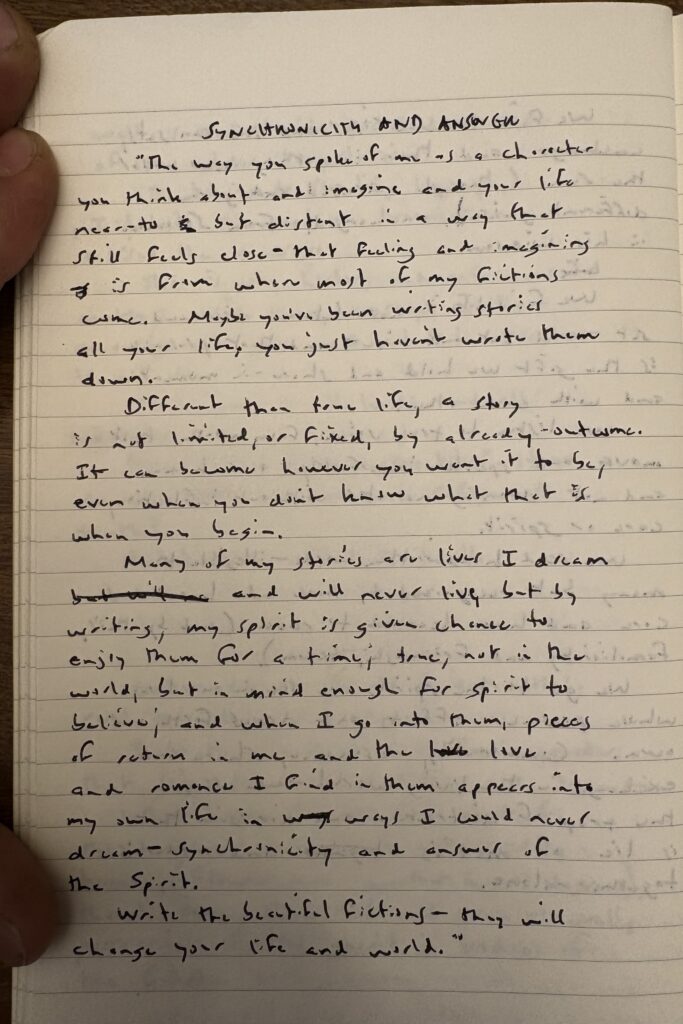 SYNCHRONICITY AND ANSWER
"The way you spoke of me as a character
you think about and imagine and your life
near-to but distant in a way that
still feels close - that feeling and imagining
is from where most of my fictions
come. Maybe you've been writing stories
all your life, you just haven't wrote them
down.
Different than true life, a story
is not limited, or fixed, by already-outcome.
It can become however you want it to be,
even when you don't know what that is
when you begin.
Many of my stories are lives I dream
but will ne and will never live, but by
writing, my spirit is given chance to
enjoy them for a time; true, not in the
world, but in mind enough for spirit to
believe; and when I go into them, pieces
of return in me and the love
and romance I find in them appears into
my own life in ways ways I could never
dream - synchronicity and answer of
the Spirit.
Write the beautiful fictions - they will
change your life and world."